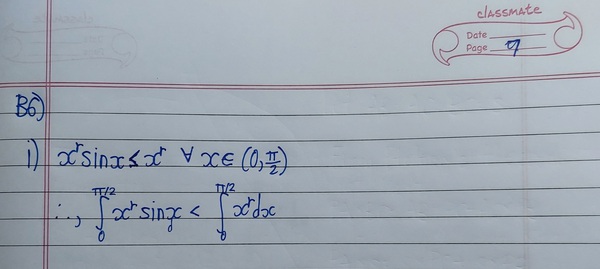 classmate
Date
Page 7
B6)
i) xʳsinx ≤ xʳ ∀ x ∈ (0, π/2)
∴, ∫₀^(π/2) xʳ sinx < ∫₀^(π/2) xʳ dx